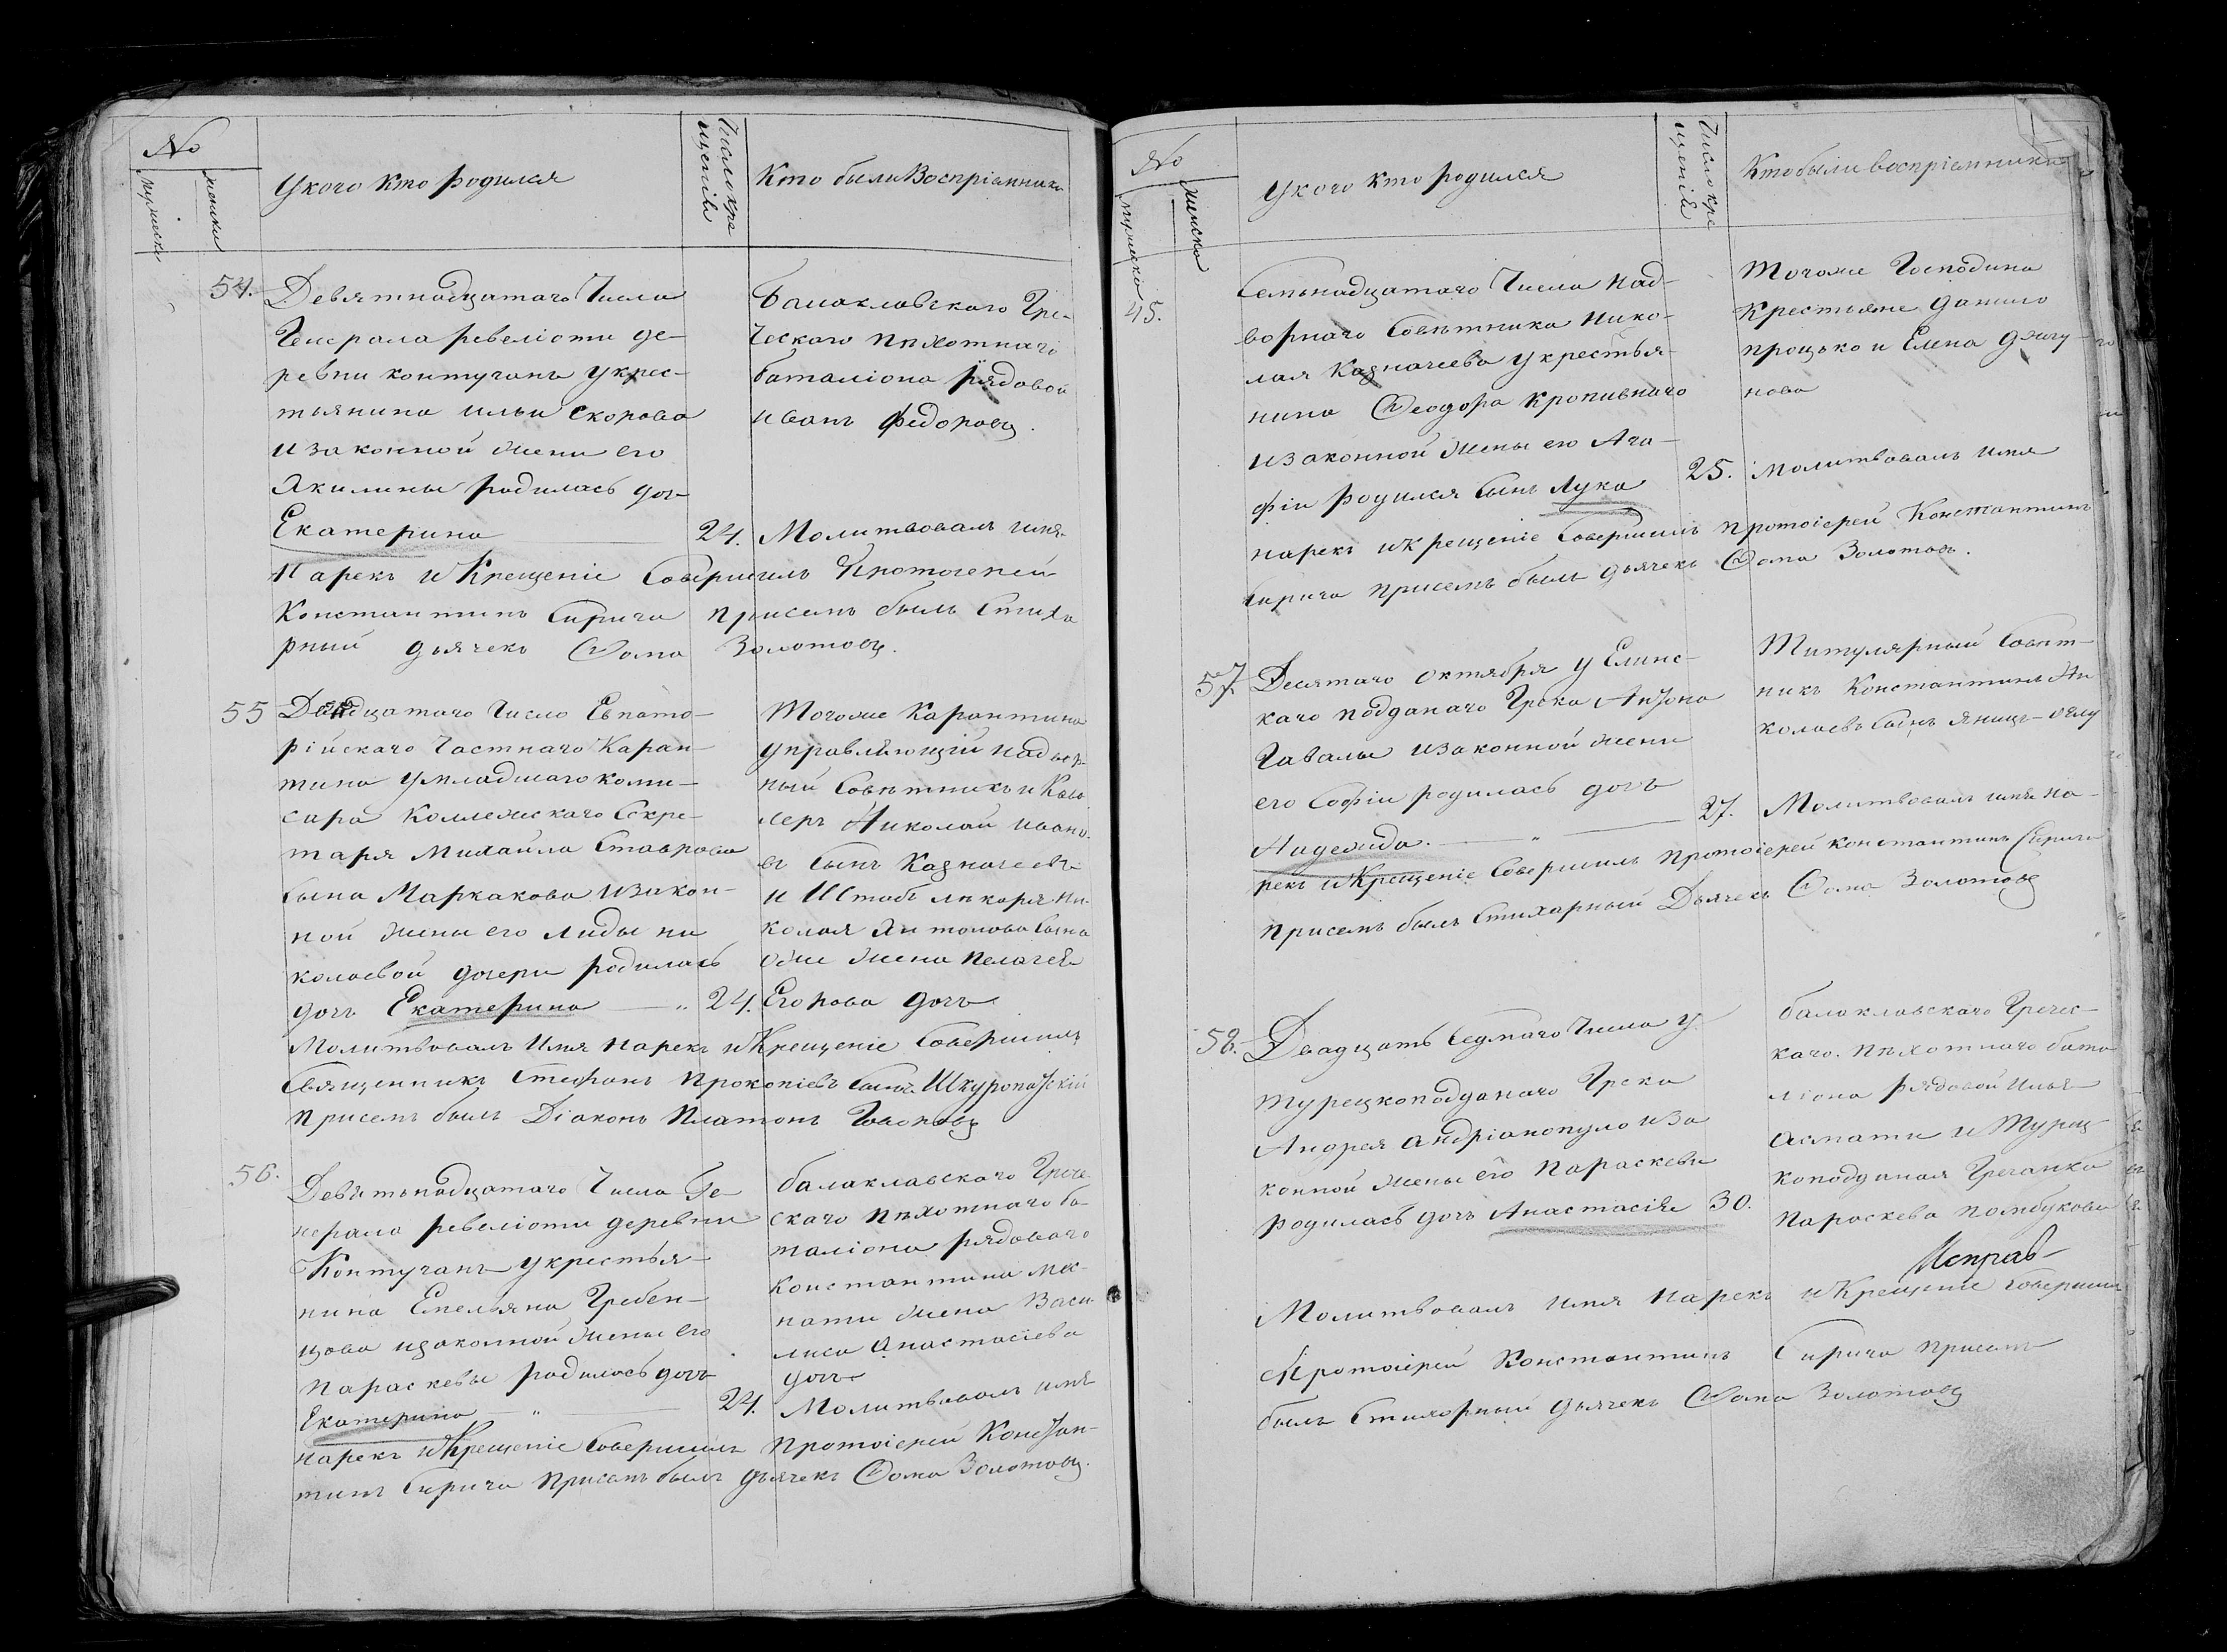 №
мужеска
женска
У кого кто родился
Число кре
щенія
Кто были Воспріемники
54.
Девятнадцатаго Числа
Генерала ревеліоти де-
ревни контуганъ у крес-
тьянина ильи скорова
и законной жены его
Якилины родилась дочь
Екатерина
24.
Балаклавского Гре-
ческаго пѣхотнаго
баталіона рядовой
иванъ федоровъ.
Молитвовалъ имя
Нарекъ и Крещеніе Совершилъ Протоіерей
Константинъ Спирича присемъ былъ Стиха
рный дьячекъ Ѳома Золотовъ.
55
Двадцатаго Число Евпато-
рійскаго Частнаго Каран-
тина у младшаго коми-
сара Коллежскаго Секре-
таря Михайла Ставрова
сына Маркакова и закон-
ной жены его Лиды ни
колаевой дочери родилась
дочь Екатерина
24.
Тогоже Карантина
управляющій надвор-
ный Совѣтникъ и Кава
леръ Николай ивано-
въ сынъ Казначеевъ
и Штабъ лѣкаря Ни-
колая Антонова сына
жена Пелагея
Егорова дочь
Молитвовалъ Имя нарекъ и Крещеніе Совершилъ
Священникъ Стефанъ Прокопіевъ сынъ Шкуропатскій
присемъ былъ Діаконъ Платонъ
56.
Девятьнадцатаго Числа Ге-
нерала ревеліоти деревни
Контуганъ у крестья-
нина Емельяна Гребен-
цова и законной жены его
Параскевы родилась дочь
Екатерина
24.
балаклавскаго Грече-
скаго пѣхотнаго ба-
таліона рядоваго
Константина
жена Васи-
лиса Анастасіева
дочь
Молитвовалъ имя
нарекъ и Крещеніе Совершилъ Протоіерей Констан-
тинъ Спирича присемъ былъ дьячекъ Ѳома Золотовъ.
№
мужеска
женска
У кого кто родился
Число кре
щенія
Кто были воспріемники
45.
Семьнадцатаго Числа Над-
ворнаго Совѣтника Нико-
лая Казначеева у крестья-
нина Ѳеодора Кропивнаго
и законной жены его Ага-
фіи родился сынъ Лука
25.
Тогоже Господина
Крестьяне Данило
Процько и Елена
нова
Молитвовалъ имя
нарекъ и Крещеніе Совершилъ Протоіерей Константинъ
Спирича присемъ былъ дьячекъ Ѳома Золотовъ.
57.
Десятаго октября у Елинс-
каго подданаго Грека Антона
Гавалы и законной жены
его Софіи родилась дочь
Надежида.
27.
Титулярный Совѣт-
никъ Константинъ Ни
колаевъ сынъ Яницъ-оглу
Молитвовалъ имя на-
рекъ и Крещеніе Совершилъ Протоіерей Константинъ Спирича
присемъ былъ Стихарный Дьячекъ Ѳома Золотовъ
58.
Двадцать Седмаго Числа у
турецкоподданаго Грека
Андрея андріанопуло и за
конной жены его Параскевы
родилась дочь Анастасія
30.
балаклавскаго Гречес-
каго пѣхотнаго бата
ліона рядовой Илья
и Турец
коподданая Гречанка
Параскева
Исправ-
Молитвовалъ имя Нарекъ и Крещеніе Совершилъ
Протоіерей Константинъ Спирича присемъ
былъ Стихарный дьячекъ Ѳома Золотовъ